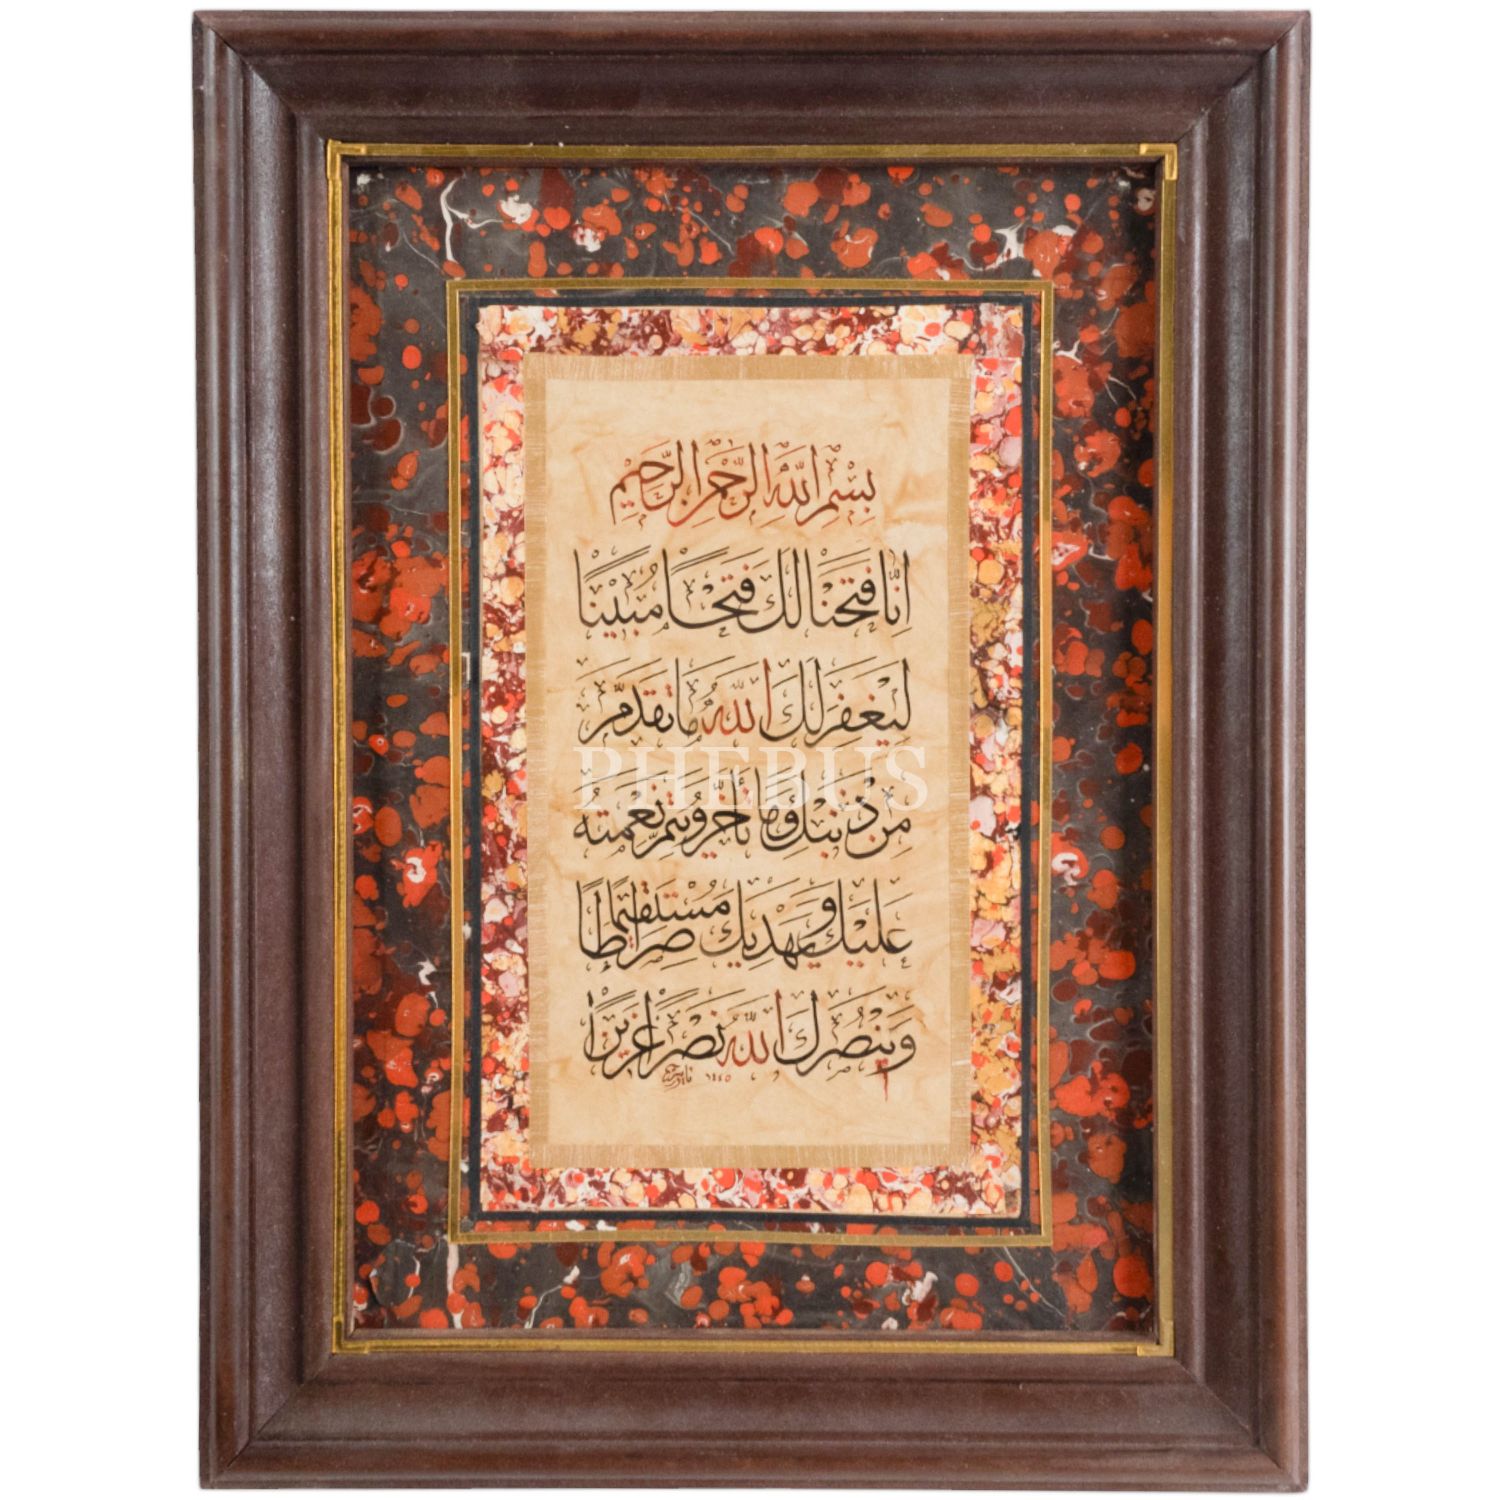 بِسْمِ اللّٰهِ الرَّحْمٰنِ الرَّحِيْمِ
اِنَّا فَتَحْنَا لَكَ فَتْحًا مُبِيْنًا
لِيَغْفِرَ لَكَ اللّٰهُ مَا تَقَدَّمَ
PHEBUS
مِنْ ذَنْبِكَ وَمَا تَأَخَّرَ وَيُتِمَّ نِعْمَتَهُ
عَلَيْكَ وَيَهْدِيَكَ صِرَاطًا مُسْتَقِيْمًا
وَيَنْصُرَكَ اللّٰهُ نَصْرًا عَزِيْزًا
١٤٤٥